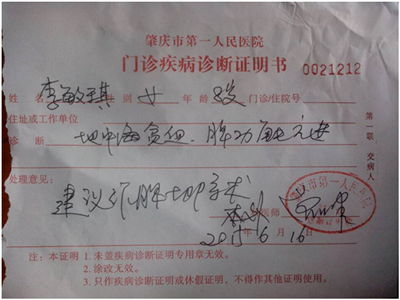 肇庆市第一人民医院
门诊疾病诊断证明书 0021212
姓名 李敏琪 性别 女 年龄 8岁 门诊/住院号
住址或工作单位
诊断 地中海贫血、脾功能亢进
处理意见：
建议行脾切手术
医师
2015年6月16日
注：本证明 1.未盖疾病诊断证明专用章无效。
2.涂改无效。
3.只作疾病诊断证明或休假证明，不得作其他证明使用。
第一联 交病人
肇庆市第一人民医院